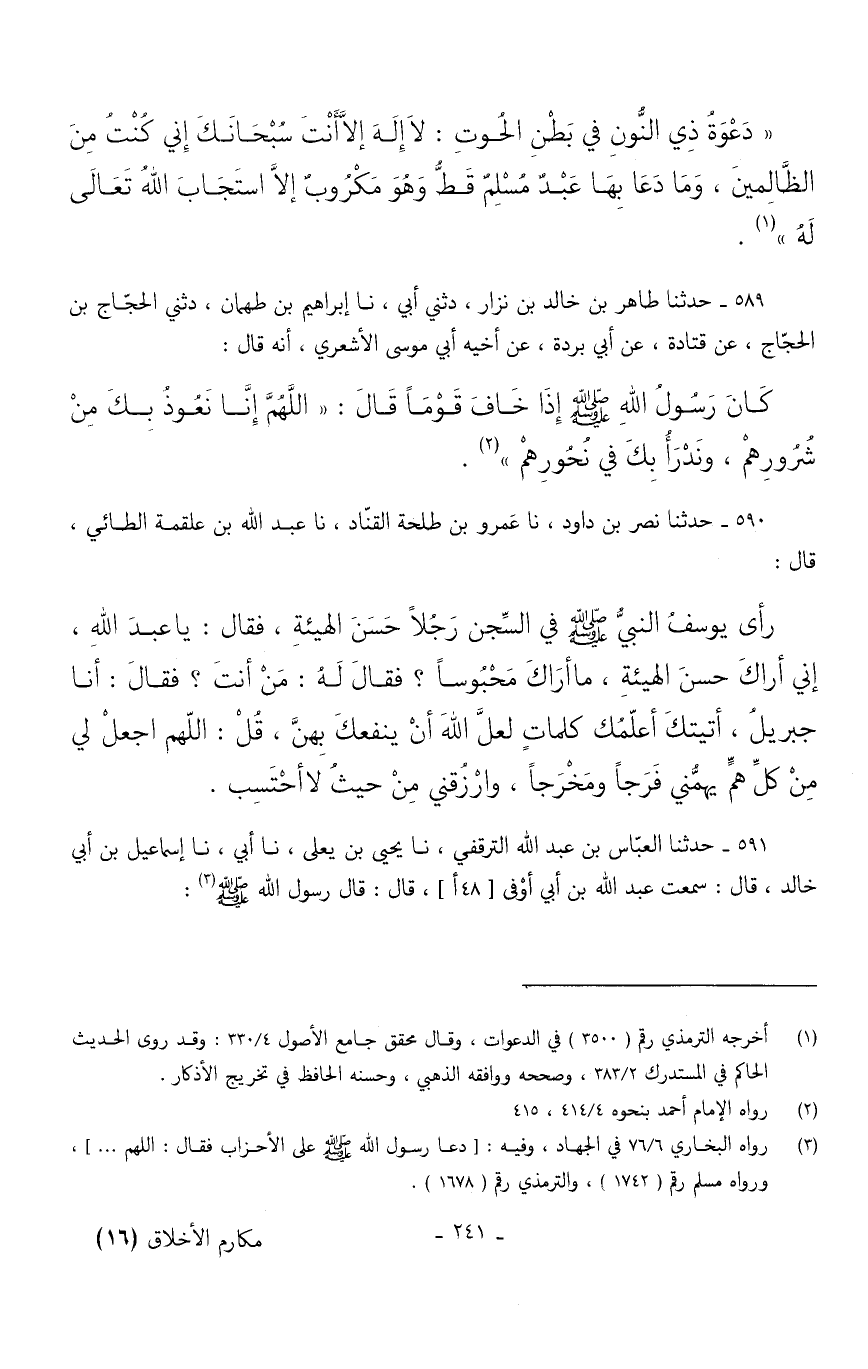 « دَعْوَةُ ذِي النُّونِ فِي بَطْنِ الحُوتِ : لاَ إِلَهَ إلاَّ أَنْتَ سُبْحَانَكَ إِنِي كُنْتُ مِنَ
الظَّالِمِينَ ، وَمَا دَعَا بِهَا عَبْدٌ مُسْلِمٌ قَطُّ وَهُوَ مَكْرُوبٌ إلاَّ استَجَابَ اللهُ تَعَالَى
لَهُ »(١) .
٥٨٩ ـ حدثنا طاهر بن خالد بن نزار ، دثني أبي ، نا إبراهيم بن طهمان ، دثني الحجّاج بن
الحجّاج ، عن قتادة ، عن أبي بردة ، عن أخيه أبي موسى الأشعري ، أنه قال :
كَانَ رَسُولُ اللهِ ﷺ إِذَا خَافَ قَوْمَاً قَالَ : « اللَّهُمَّ إِنَّا نَعُوذُ بِكَ مِنْ
شُرُورِهِمْ ، ونَدْرَأُ بِكَ فِي نُحُورِهِمْ »(٢) .
٥٩٠ ـ حدثنا نصر بن داود ، نا عَمرو بن طلحة القنّاد ، نا عبد الله بن علقمة الطائي ،
قال :
رأى يوسفُ النبيُّ ﷺ في السِّجن رَجُلاً حَسَنَ الهيئةِ ، فقال : يا عبدَ اللهِ ،
إني أراكَ حسنَ الهيئةِ ، ما أرَاكَ مَحْبُوساً ؟ فقالَ لَهُ : مَنْ أنتَ ؟ فقالَ : أنا
جبريلُ ، أتيتكَ أعلّمُك كلماتٍ لعلَّ اللهَ أنْ ينفعكَ بهنَّ ، قُلْ : اللّهم اجعلْ لي
مِنْ كلِّ همٍّ يهمُّني فَرَجاً ومَخْرَجاً ، وارْزُقني مِنْ حيثُ لا أحْتَسِب .
٥٩١ ـ حدثنا العبّاس بن عبد الله الترقفي ، نا يحيى بن يعلى ، نا أبي ، نا إسماعيل بن أبي
خالد ، قال : سمعت عبد الله بن أبي أوْفى [ ٤٨أ ] ، قال : قال رسول الله ﷺ(٣) :
(١) أخرجه الترمذي رقم ( ٣٥٠٠ ) في الدعوات ، وقال محقق جامع الأصول ٣٣٠/٤ : وقد روى الحديث
الحاكم في المستدرك ٣٨٣/٢ ، وصححه ووافقه الذهبي ، وحسنه الحافظ في تخريج الأذكار .
(٢) رواه الإمام أحمد بنحوه ٤١٤/٤ ، ٤١٥
(٣) رواه البخاري ٧٦/٦ في الجهاد ، وفيه : [ دعا رسول الله ﷺ على الأحزاب فقال : اللهم ... ] ،
ورواه مسلم رقم ( ١٧٤٢ ) ، والترمذي رقم ( ١٦٧٨ ) .
ـ ٢٤١ ـ
مكارم الأخلاق (١٦)